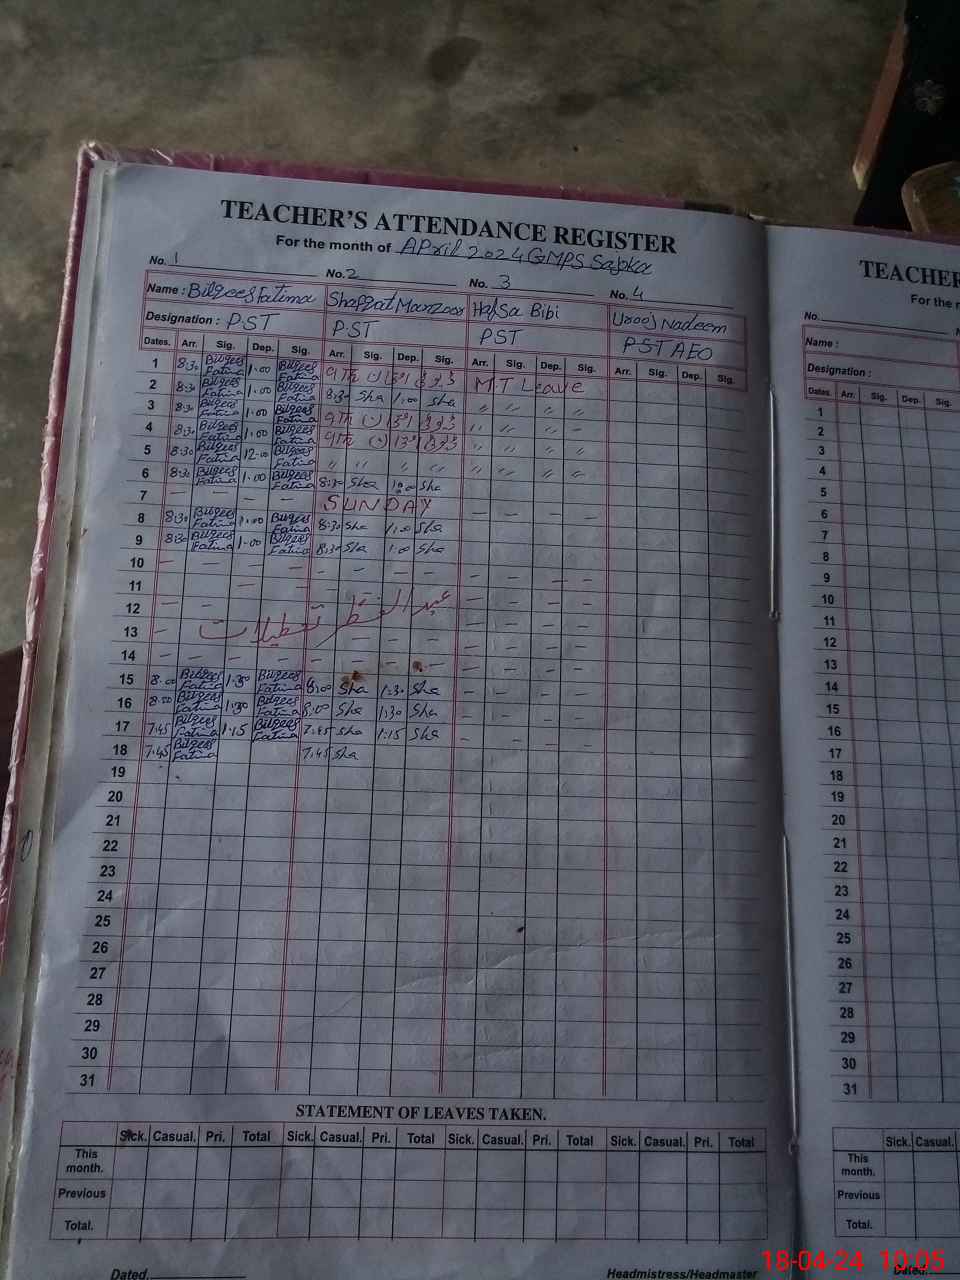 TEACHER'S ATTENDANCE REGISTER
For the month of April 2024 GMPS Sajoka
No. 1 No. 2 No. 3 No. 4
Name : Bilqees Fatima Shafqat Manzoor Hafsa Bibi Urooj Nadeem
Designation : PST PST PST PST AEO
Dates. Arr. Sig. Dep. Sig. Arr. Sig. Dep. Sig. Arr. Sig. Dep. Sig. Arr. Sig. Dep. Sig.
1 8:30 Bilqees Fatima 1:00 Bilqees Fatima M.T Leave
2 8:30 Bilqees Fatima 1:00 Bilqees Fatima 8:30 Sha 1:00 Sha 〃 〃 〃 –
3 8:30 Bilqees Fatima 1:00 Bilqees Fatima 〃 〃 〃 –
4 8:30 Bilqees Fatima 1:00 Bilqees Fatima 〃 〃 〃 –
5 8:30 Bilqees Fatima 12:00 Bilqees Fatima 〃 〃 〃 〃 〃 〃 〃 –
6 8:30 Bilqees Fatima 1:00 Bilqees Fatima 8:30 Sha 1:00 Sha
7 – – – – SUNDAY – – – –
8 8:30 Bilqees Fatima 1:00 Bilqees Fatima 8:30 Sha 1:00 Sha – – – –
9 8:30 Bilqees Fatima 1:00 Bilqees Fatima 8:30 Sha 1:00 Sha – – – –
10 – – – – – – – –
11 – – – –
12 – –
عید الفطر تعطیلات
13 –
14 – – – –
15 8:00 Bilqees Fatima 1:30 Bilqees Fatima 8:00 Sha 1:30 Sha – – – –
16 8:00 Bilqees Fatima 1:30 Bilqees Fatima 8:00 Sha 1:30 Sha – – – –
17 7:45 Bilqees Fatima 1:15 Bilqees Fatima 7:45 Sha 1:15 Sha – – – –
18 7:45 Bilqees Fatima 7:45 Sha
19
20
21
22
23
24
25
26
27
28
29
30
31
STATEMENT OF LEAVES TAKEN.
Sick. Casual. Pri. Total Sick. Casual. Pri. Total Sick. Casual. Pri. Total Sick. Casual. Pri. Total
This month.
Previous
Total.
Dated. Headmistress/Headmaster
TEACHER
For the
No.
Name :
Designation :
Dates. Arr. Sig. Dep. Sig.
1
2
3
4
5
6
7
8
9
10
11
12
13
14
15
16
17
18
19
20
21
22
23
24
25
26
27
28
29
30
31
Sick. Casual.
This month.
Previous
Total.
Dated.
18-04-24 10:05